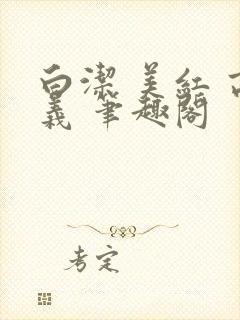 白潔 美紅 高
義 筆趣閣
考定